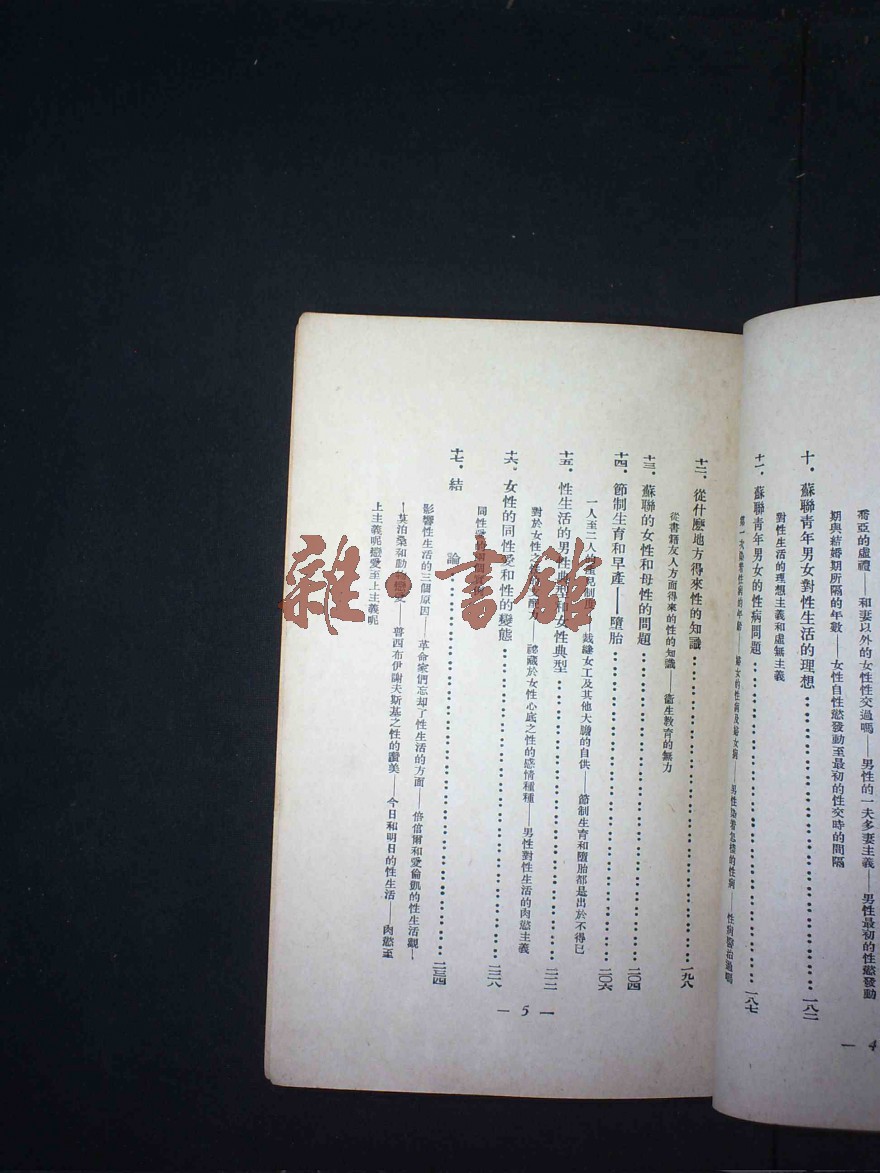 喬亞的虛禮——和妻以外的女性性交過嗎——男性的一夫多妻主義——男性最初的性慾發動
期與結婚期所隔的年數——女性自性慾發動至最初的性交時的間隔
十．蘇聯青年男女對性生活的理想 一八二
對性生活的理想主義和虛無主義
十一．蘇聯青年男女的性病問題 一八七
第一次染着性病的年齡——婦女的性病及婦女病——男性染着怎樣的性病——性病醫治過嗎
十二．從什麼地方得來性的知識 一九八
從書籍友人方面得來的性的知識——衞生教育的無力
十三．蘇聯的女性和母性的問題 二〇四
十四．節制生育和早產——墮胎 二〇六
一人至二人的 兒制 裁縫女工及其他大膽的自供——節制生育和墮胎都是出於不得已
十五．性生活的男性典型和女性典型 二二二
對於女性之性的支配力——祕藏於女性心底之性的感情種種——男性對性生活的肉慾主義
十六．女性的同性愛和性的變態 二二八
同性愛的
十七．結論 二三四
影響性生活的三個原因——革命家們忘却了性生活的方面——倍倍爾和愛倫凱的性生活觀—
—莫泊桑和動物戀愛——魯西布伊謝夫斯基之性的讚美——今日和明日的性生活——肉慾至
上主義呢戀愛至上主義呢
— 5 —
— 4
雜·書館